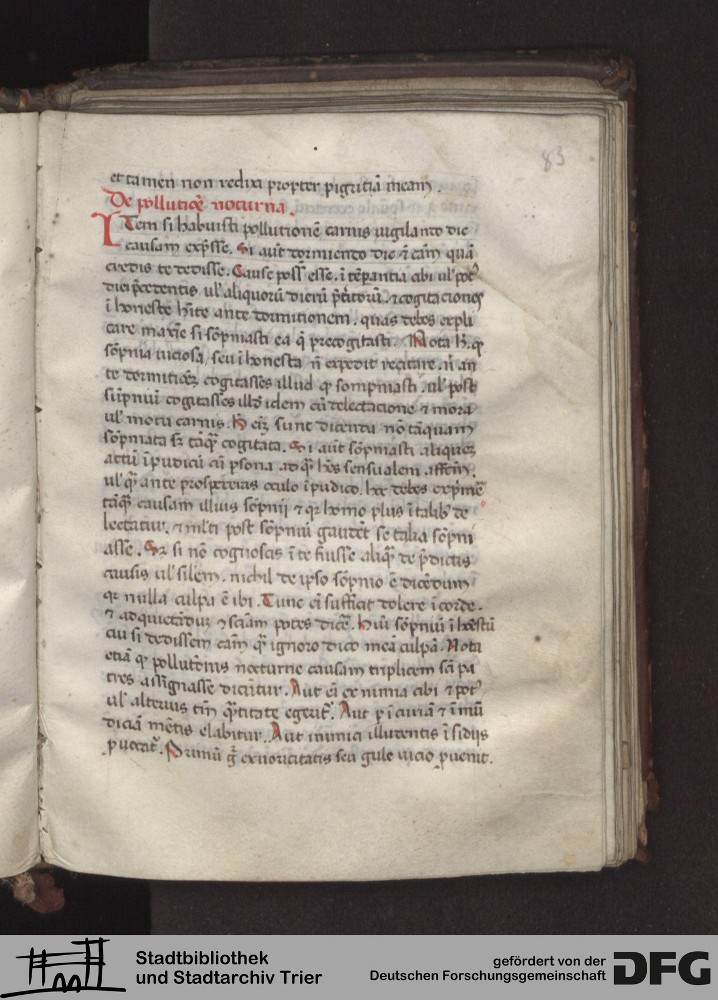 83
et tamen non redixi propter pigritiā meam.
De pollutiōe nocturna.
Item si habuisti pollutionē carnis vigilando dic
causam exp̄sse. Si aūt dormiendo dic ⁊ cām quā
credis te dedisse. Cause poss̄ esse. ītēpantia cibi ul' pot9
diei p̄cedentis ul' aliquorū dierū p̄t̄itorū. ⁊ cogitaciones
īhoneste hīte ante dormitionem. quas debes expli
care maxīe si sōpniasti ea q̄ precogitasti. Nota h̄. qp
sōpnia viciosa, seu īhonesta n̄ expedit recitare. ni an
te dormitiōeʒ cogitasses illud qp sompniasti. ul' post
sūpnū cogitasses ill'd idem cū delectacione ⁊ mora
ul' motu carnis. H̄ eiʒ sunt dicenda nō tāquam
sōpniata sʒ tāq̄ cogitata. Si aūt sōpniasti aliqueʒ
actū īpudicū cū p̄sona ad q̄ h̄es sensualem affem̄.
ul' q̄ ante prospexeras oculo īpudico. hec debes exp̄mē
tāq̄ causam illius sōpnij ⁊ qr homo plus ī talib9 de
lectatur. ⁊ ml'ti post sōpniū gaudēt se talia sōpni
asse. Sʒ si nō cognoscis ī te fuisse aliq̄ de p̄dictis
causis ul' silem. nichil de ip̄o sōpnio ē dicēdum
qr nulla culpa ē ibi. Tunc ei sufficit dolere ī corde.
⁊ ad quietādū ⁊sciām potes dicē. Hui9 sōpniū īhōestū
cui si dedissem cām q̄ ignoro dico meā culpā. Nota
etiā qp pollutōnis nocturne causam triplicem sci pa
tres assignasse dicūtur. Aut ei ex nimia cibi ⁊ pot9
ul' alterius tm̄ q̄titate egerit. Aut p īcuriā ⁊ īmū
diciā mētis elabitur. Aut inimici illudentis īsidijs
p̄vocat'. Primū g̊ ex voracitatis seu gule vicio p̄venit.
Stadtbibliothek
und Stadtarchiv Trier
gefördert von der
Deutschen Forschungsgemeinschaft
DFG